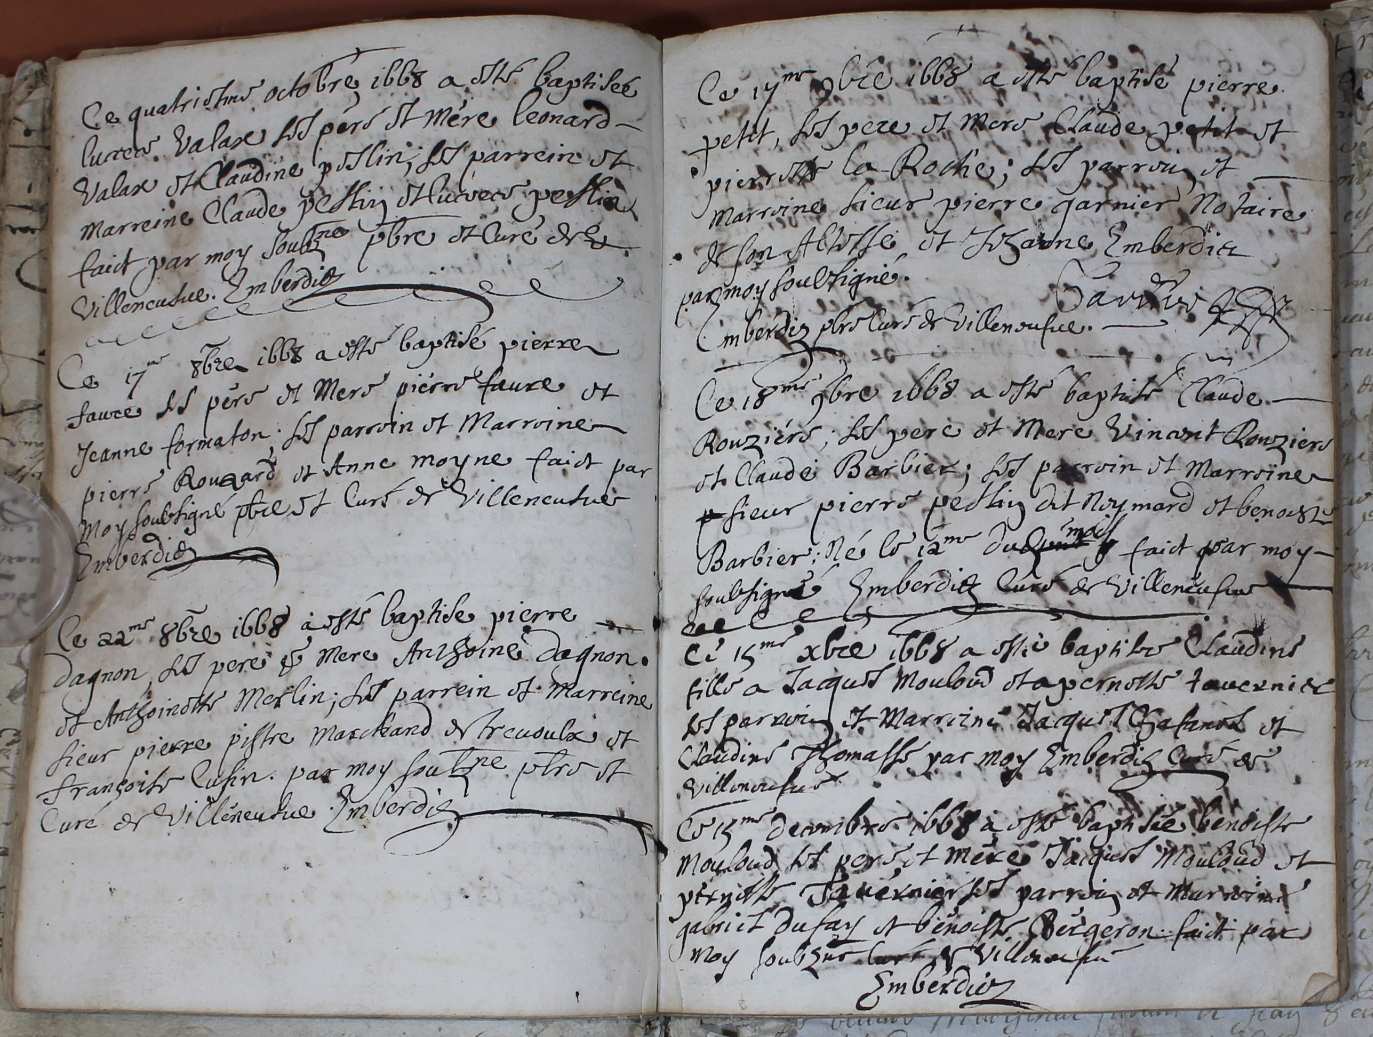 Ce quatriesme octobre 1668 a esté baptisée
lucrece Valax ses pere et mere leonard
Valax et Claudine peslin; ses parrein et
marreine Claude peslin et lucrece peslin
faict par moy soubzne pbre et Curé de
Villeneufve. Emberdis
Ce 17me 8bre 1668 a esté baptisé pierre
faure ses pere et Mere pierre faure et
Jeanne formaton; ses parroin et Marroine
pierre Rouzard et Anne moyne faict par
moy soubsigné pbre et Curé de Villeneufve
Emberdis
Ce 22me 8bre 1668 a esté baptisé pierre
Dagnon, ses pere & Mere Anthoine Dagnon
et Anthoinette Merlin; ses parrein et Marreine
sieur pierre pistre Marchand de trevoulx et
françoise Cusin. par moy soubzne pbre et
Curé de Villeneufve Emberdis
Ce 17me 9bre 1668 a esté baptisé pierre
petit, ses pere et Mere Claude petit et
pierrette la Roche; ses parroin et
Marroine sieur pierre garnier Notaire
de son Altesse et Suzanne Emberdis
par moy soubsigné.
Emberdis pbre Curé de Villeneufve.
Ce 18me 9bre 1668 a esté baptisé Claude
Rouziers; ses pere et Mere Vincent Rouziers
et Claude Barbier; ses parroin et Marroine
sieur pierre peslin dit Noymard et benoiste
Barbier: Né le 12me du mois faict par moy
soubsigné Emberdis Curé de Villeneufve
Ce 15me xbre 1668 a esté baptisée Claudine
fille a Jacques Mouloud et a pernette tavernier
ses parroin et Marroine Jacques et
Claudine Thomasse par moy Emberdis Curé de
Villeneufve
Ce 15me decembre 1668 a esté baptisée benoiste
Mouloud ses pere et mere Jacques Mouloud et
pernette Tavernier ses parroin et marroine
gabriel Dufay et benoiste Bergeron faict par
moy soubzné Curé de Villeneufve
Emberdis